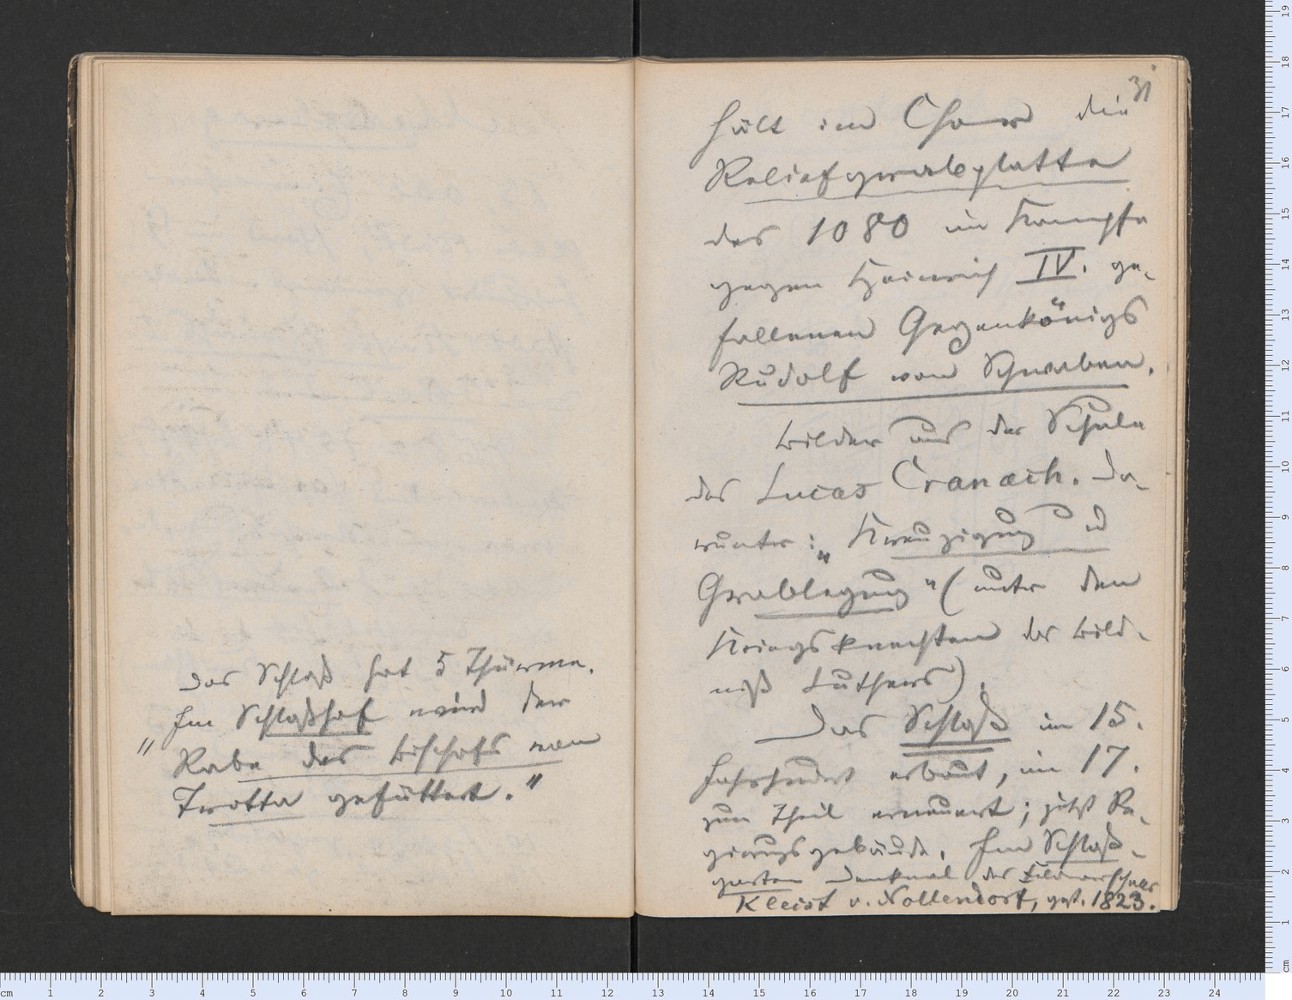 Das Schloß hat 5 Thürme.
Im Schloßhof wird der
"Rabe des Bischofs von
Trotta gefüttert."
31
hält im Chor die
Reliefgrabplatte
des 1080 im Kampfe
gegen Heinrich IV. ge-
fallenen Gegenkönigs
Rudolf von Schwaben.
Bilder aus der Schule
des Lucas Cranach. Da-
runter: „Kreuzigung u
Grablegung" (unter den
Kriegsknechten das Bild-
niß Luthers).
Das Schloß im 15.
Jahrhundert erbaut, im 17.
zum Theil erneuert; jetzt Re-
gierungsgebäude. Im Schloß-
garten Denkmal des Feldmarschalls
Kleist v. Nollendorf, gest. 1823.